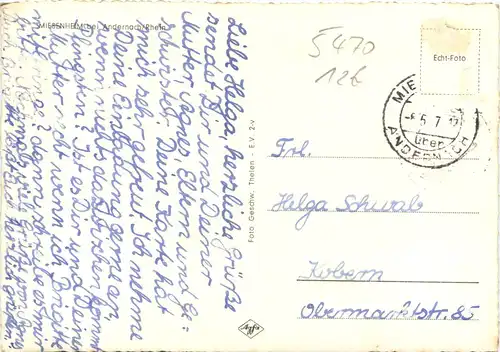 MIESENHEIM bei Andernach/Rhein
Liebe Helga, herzliche Grüße
sendet Dir und Deiner
Mutter Agnes, Eltern und Ge-
schwister. Deine Karte hat
mich sehr gefreut. Ich nehme
Deine Einladung gerne an,
wenn nichts dazwischen kommt.
Ist es Dir und Deiner
Mutter recht wenn ich Brigitte
mit
dann schreibe es mir
Foto Geschw. Theisen - E.V. 2v
Agfa
5470
12€
Echt-Foto
MIE
-6.7.
über
ANDERNACH
Frl.
Helga Schwab
Kobern
Obermarktstr. 85